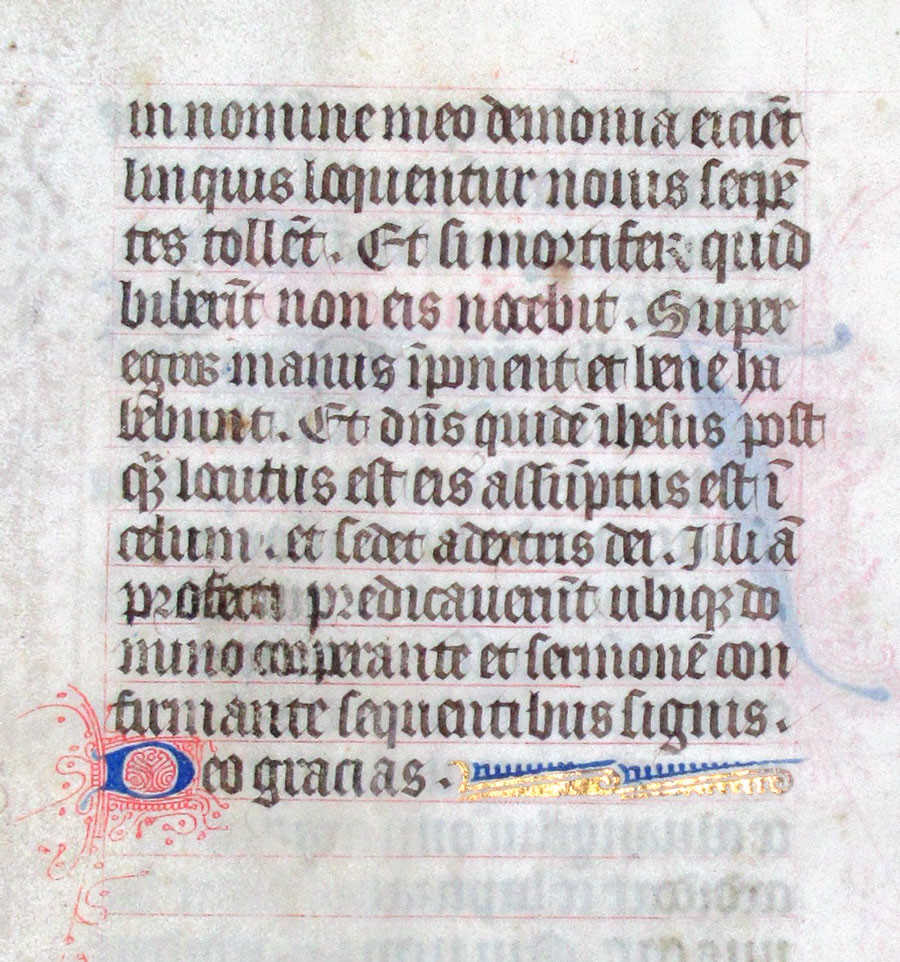 in nomine meo demonia eiciēt
linquis loquentur nouis serpē
tes tollēt. Et si mortiferꝝ quid
biberīt non eis nocebit. Super
egros manus īponent et bene ha
bebunt. Et dn̄s quidē ihesus post
qꝫ locutus est eis assūptus est ī
celum. et sedet adextris dei. Illi ā
profecti predicauerūt ubiqꝫ do
mino cooperante et sermonē con
firmante sequentibus signis.
Deo gracias.